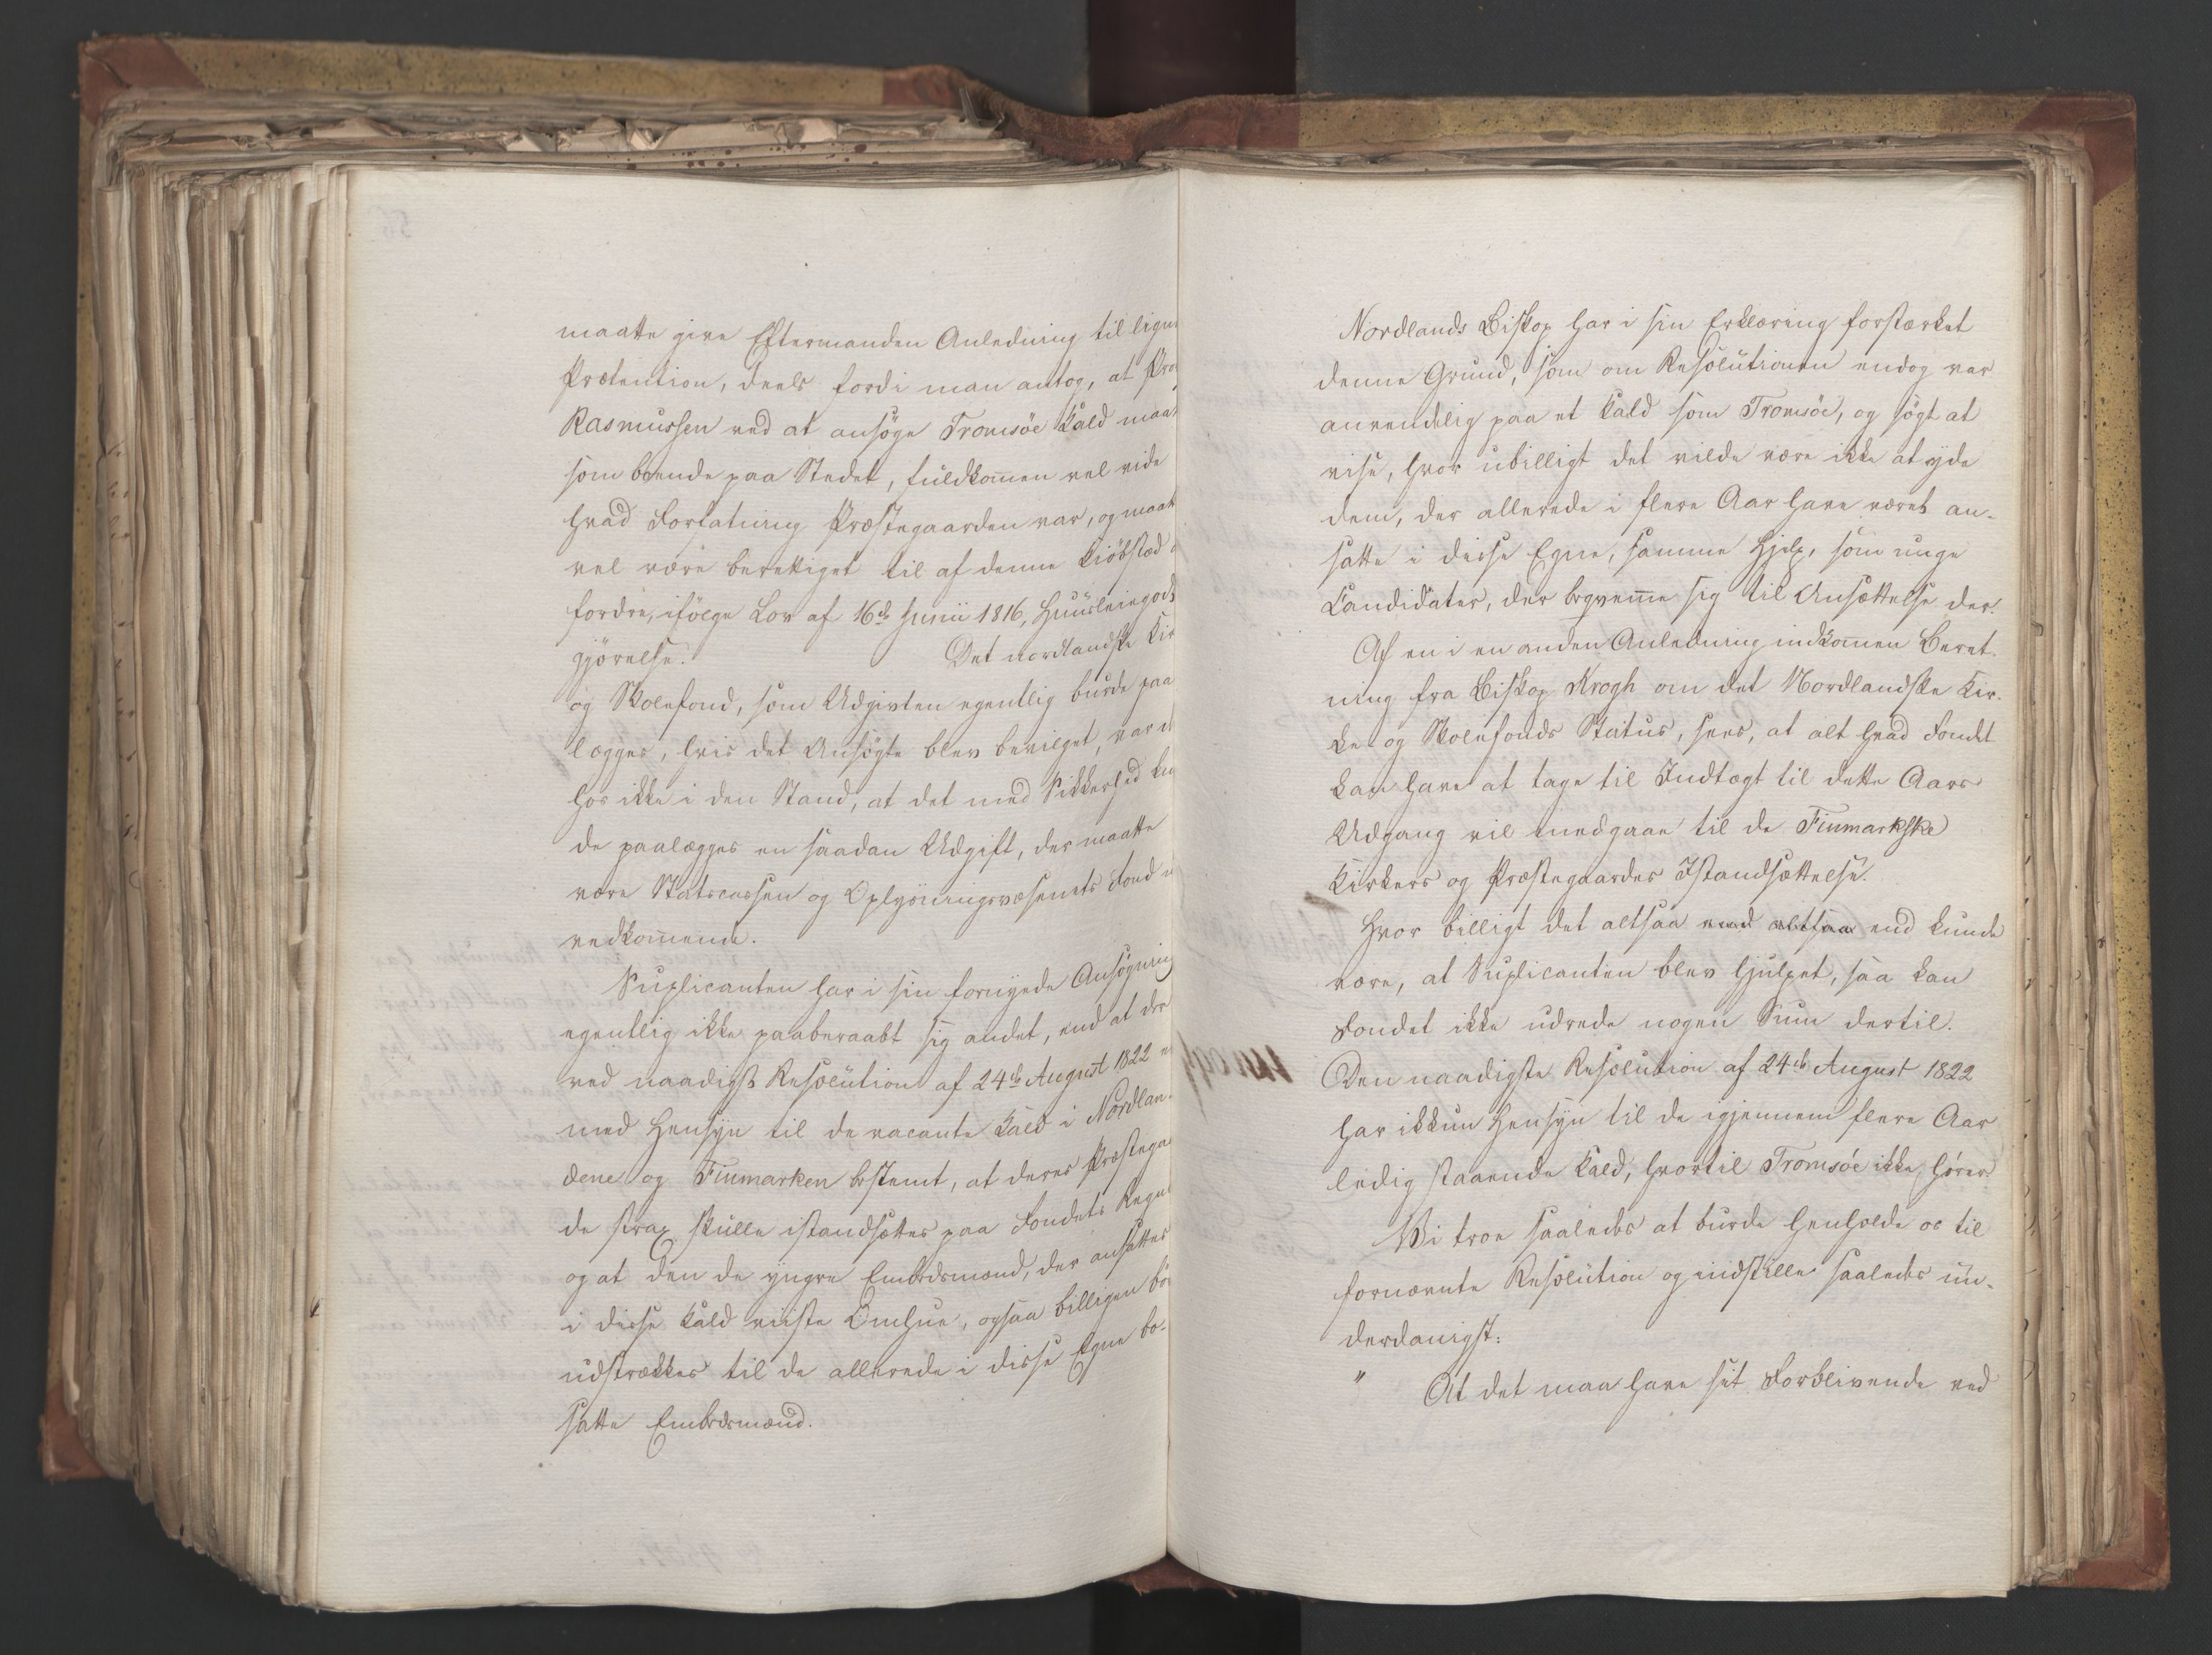 maatte give Eftermanden Anledning til lign
Prætention, deels fordi man antog, at Pro
Rasmussen ved at ansöge Tromsöe Kald maat
som boende paa Stedet, fuldkom̅en vel vide
hvad Forfatning Præstegaarden var, og maat
vel være berettiget til af denne Kiöbstad
fordre, ifölge Lov af 16de Junii 1816, Huusleiegodt
gjörelse. Det nordlandske Kir
og Skolefond, som Udgivten egentlig burde paa
lægges, hvis det Ansögte blev bevilget, var d
her ikke i den Stand, at det med Sikkerhed kun
de paalægges en saadan Udgift, der maatte
være Statscassen og Oplysningsvæsenets Fond u
vedkom̅ende.
Suplicanten har i sin fornyede Ansögning
egentlig ikke paaberaabt sig andet, end at der
ved naadigst Resolution af 24de August 1822 er
med Hensyn til de vacante Kald i Nordlan-
dene og Finmarken bestemt, at deres Præstegaa
de strax skulle istandsættes paa Fondets Regni
og at den de yngre Embedsmænd, der ansættes
i disse Kald viiste Omhue, ogsaa billigen bör
udstrækkes til de allerede i disse Egne bo-
satte Embedsmænd.
Nordlands Biskop har i sin Erklæring forstærket
denne Grund, som om Resolutionen endog var
anvendelig paa et Kald som Tromsöe, og sögt at
vise, hvor ubilligt det vilde være ikke at yde
dem, der allerede i flere Aar have været an-
satte i disse Egne, samme Hjelp, som unge
Candidater, der beqvem̅e sig til Ansættelse der.
Af en i en anden Anledning indkom̅en Beret-
ning fra Biskop Krogh om det Nordlandske Kir-
ke og Skolefonds Status, sees, at alt hvad Fondet
kan have at tage til Indtægt til dette Aars
Udgang vil medgaae til de Finmarkske
Kirkers og Præstegaardes Istandsættelse.
Hvor billigt det altsaa end altsaa end kunde
være, at Suplicanten blev hjulpet, saa kan
Fondet ikke udrede nogen Sum dertil.
Den naadigste Resolution af 24de August 1822
har ikkun Hensyn til de igjennem flere Aar
ledig staaende Kald, hvortil Tromsöe ikke hörer.
Vi troe saaledes at burde henholde os til
fornævnte Resolution og indstille saaledes un-
derdanigst:
" At det maa have sit Forblivende ved